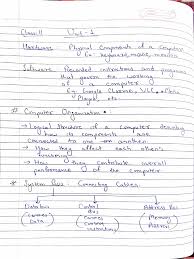 Class-11 Unit-1
Hardware Physical Components of a Computer
Eg- keyboard, mouse, monitor
Software Recorded instructions and programs
that govern the working
of a computer
Eg- Google Chrome, VLC, Alpha
Magnet, etc.
# Computer Organisation :-
→ Logical Structure of a Computer describing
how its components are
connected to one another
→ How they affect each other's
functioning
→ How they contribute overall
performance of the computer
* System Bus - Connecting Cables
Data bus
(Carries Data)
Control Bus
(Carries Control)
Address Bus
(Memory Address)